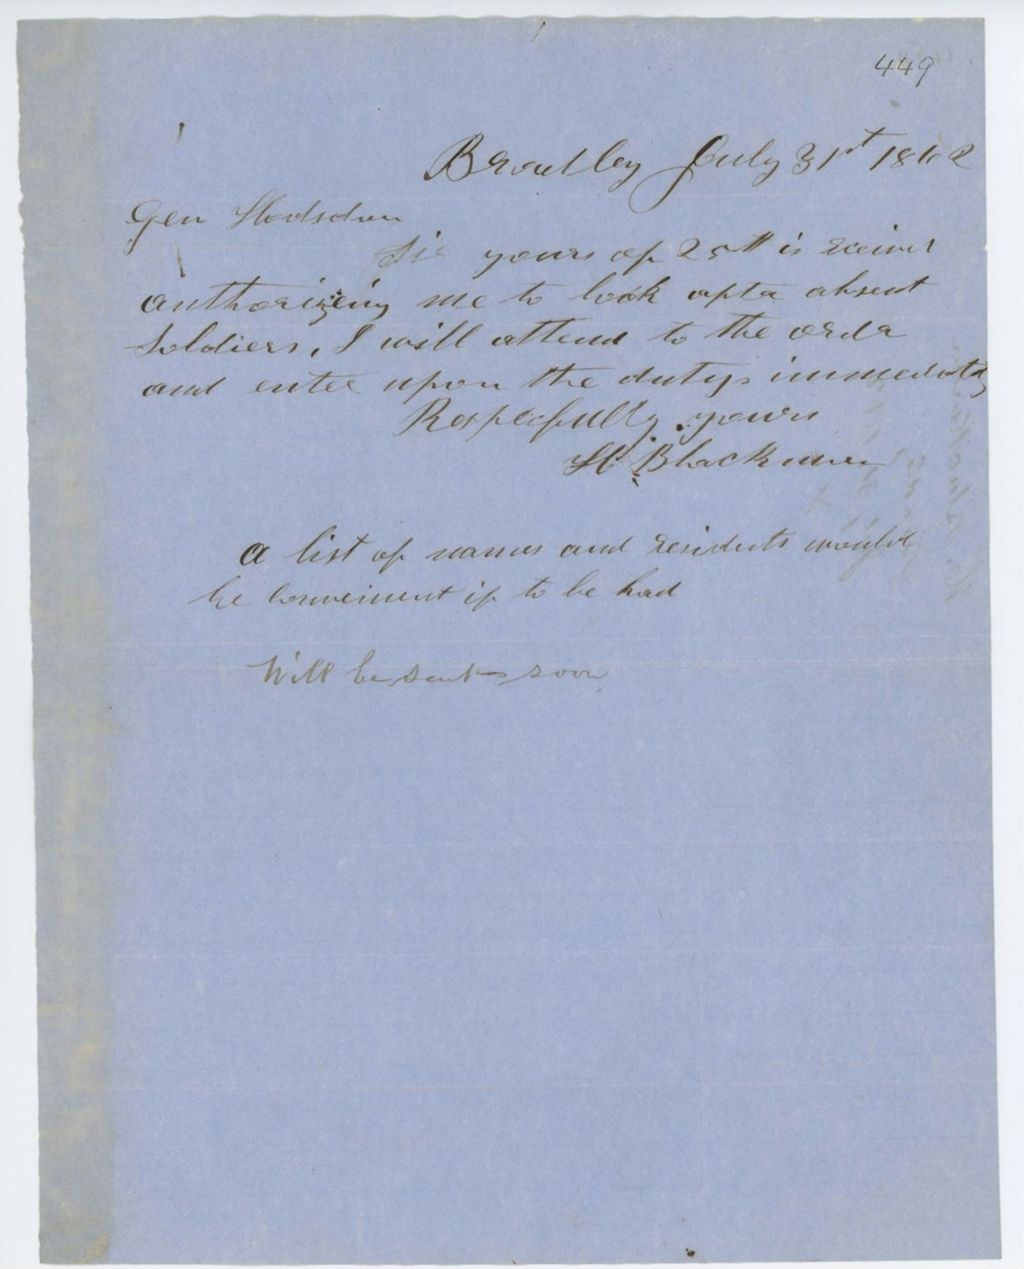 449
Bradley July 31st 1862
Gen Hodsdon
Sir yours of 25th is receivd
authorizeing me to look after absent
Soldiers, I will attend to the order
and enter upon the dutys immediatly
Respecfully yours
H. Blackman
a list of names and residents would
be conveinient if to be had
Will be sent soon